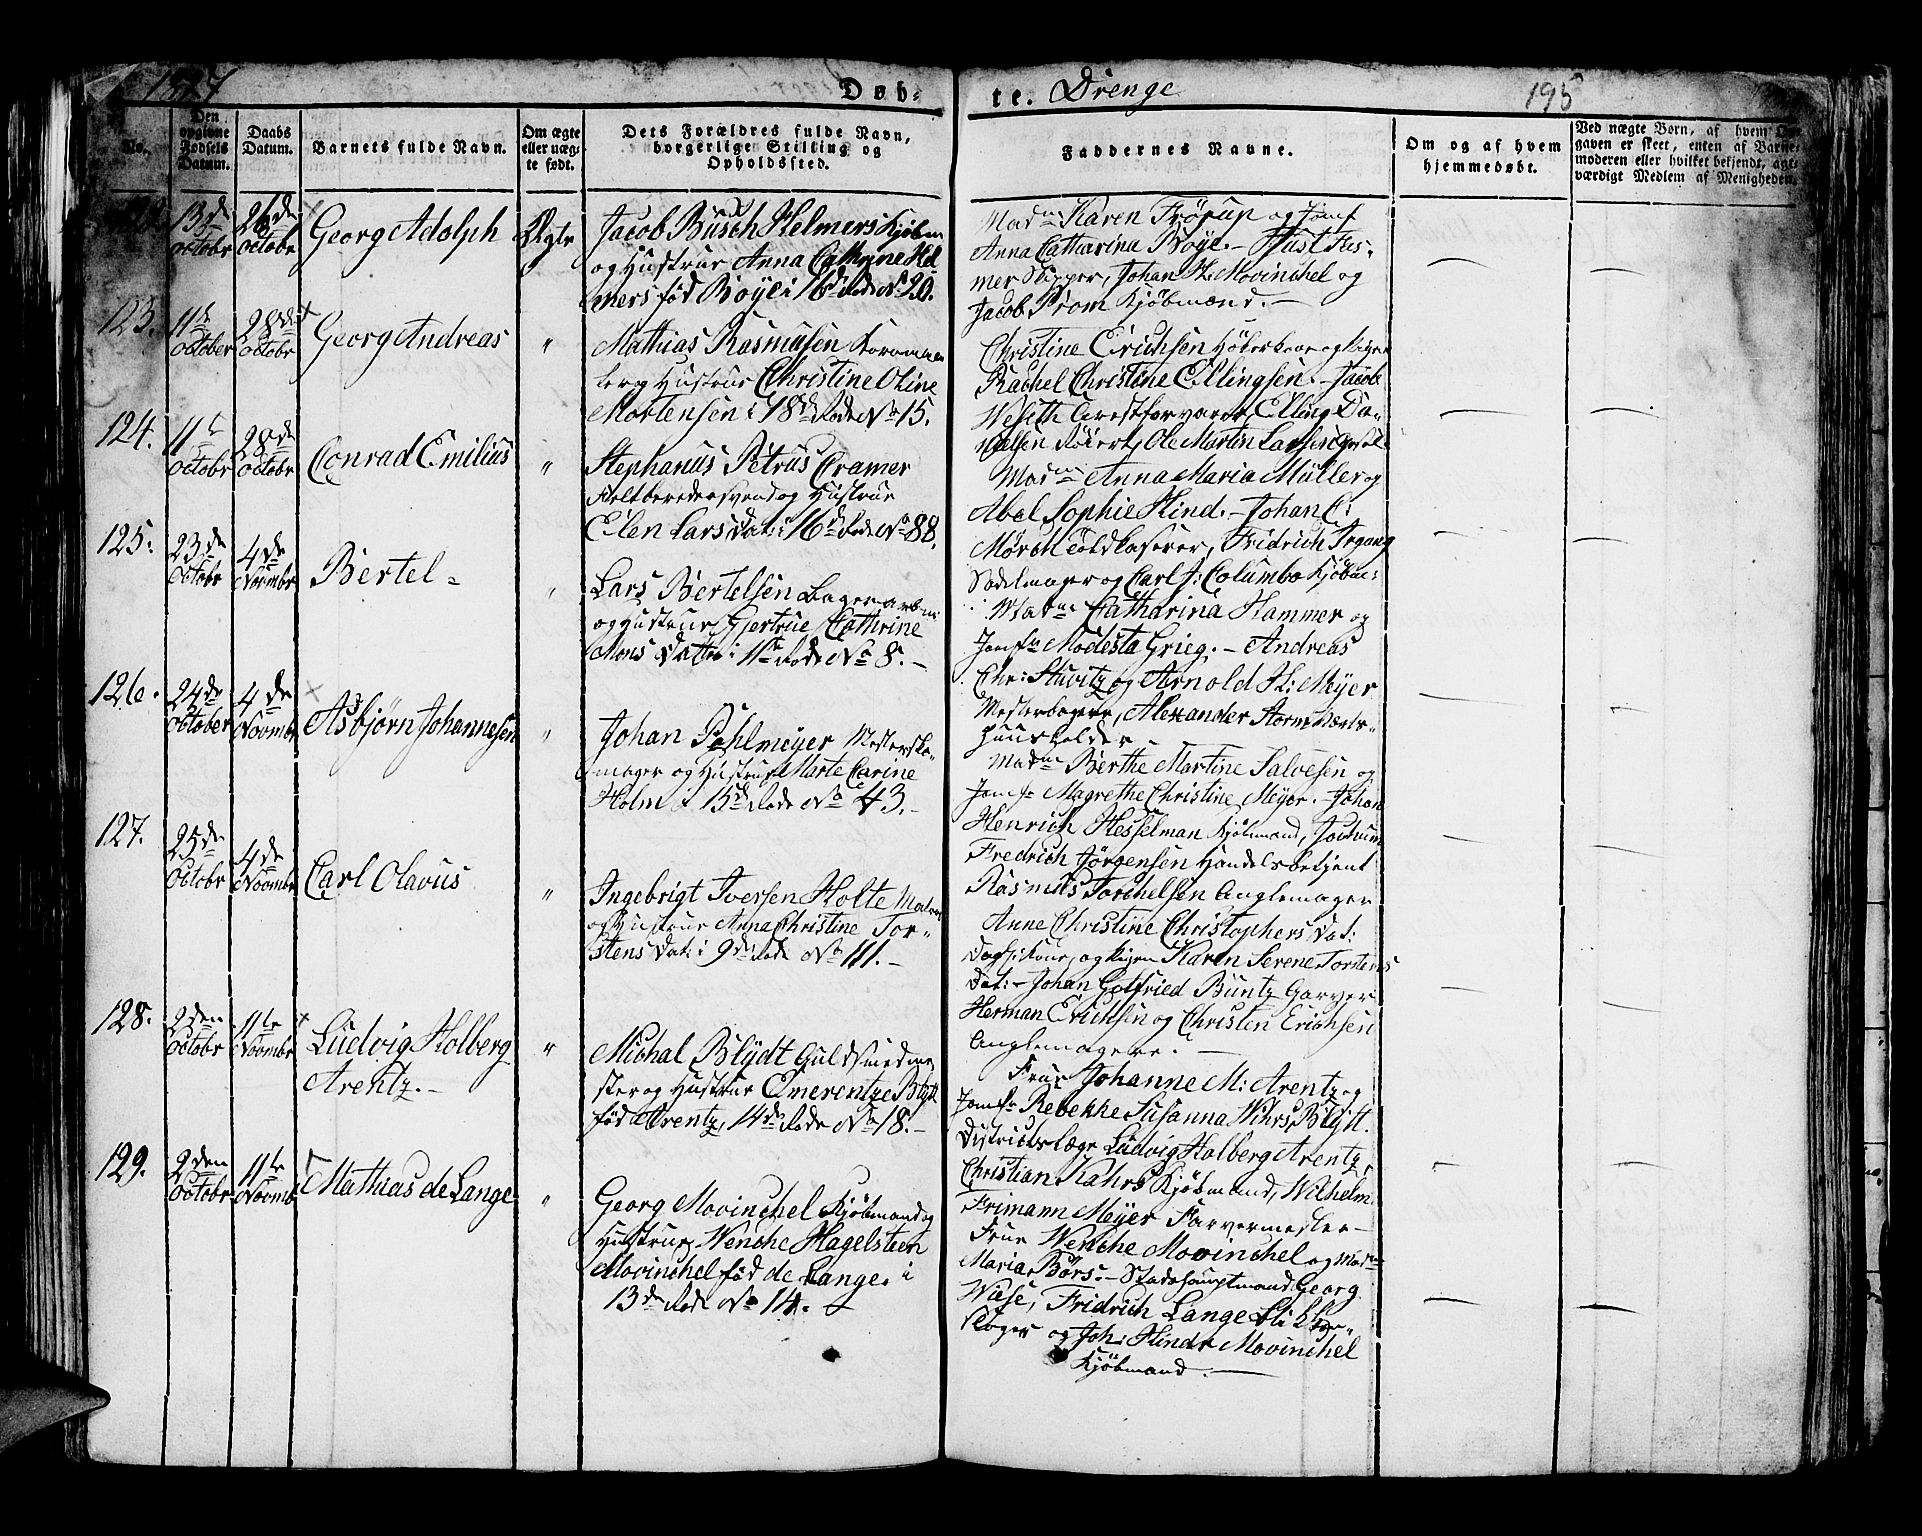 1827
Døb-
te. Drenge
195
No.
Den opgivne Fødsels Datum.
Daabs Datum.
Barnets fulde Navn.
Om ægte eller uægte født.
Dets Forældres fulde Navn, borgerlige Stilling og Opholdssted.
Faddernes Navne.
Om og af hvem hjemmedøbt.
Ved uægte Børn, af hvem Opgaven er skeet, enten af Barnemoderen eller hvilket bekjendt, agtværdigt Medlem af Menigheden.
13de octobr
26de octobr
Georg Adolph
Ægte
Jacob Busch Helmers Kjøbm
og Hustrue Anna Cathrine Hel
mers fød Boye i 16de Rode No 20.
Madme Karen Frörup og Jomf
Anna Catharina Boye. - Just Fus-
mer Skipper, Johan H. Mowinchel og
Jacob Prom Kjøbmænd. -
123.
11te october
28de octobr
Georg Andreas
"
Mathias Rasmusen
og Hustrue Christine Oline
Mortensen i 18de Rode No 15.
Christine Erichsen og
Rachel Christine Ellingsen. - Jacob
Weseth Arrestforvarer, Elling Da-
nielsen, Ole Martin Larsen
124.
11te octobr
28de octobr
Conrad Emilius
"
Stephanus Petrus Cramer
Feltberedersvend og Hustrue
Elen Larsdat: i 16de Rode No 88.
Madme Anna Maria Müller og
Abel Sophie Hind. - Johan C:
Mørch Toldkaserer, Fridrich Irgang
Sadelmager og Carl J: Columbo Kjøbm:
125.
23de octobr
4de Novmbr
Bertel -
"
Lars Bertelsen
og Hustrue Gjertrue Cathrine
Mons Datter i 11te Rode No 8. -
Madme Catharina Hammer og
Jomfr Modesta Grieg. - Andreas
Chr: Stuvitz og Arnold H: Meyer
Mesterbagere, Alexander Storm Værts-
huusholder
126.
24de october
4de Novmbr
Asbjørn Johannesen
"
Johan Pohlmeyer Mestersko-
mager og Hustrue Marte Carine
Holm i 15de Rode No 43. -
Madme Berthe Martine Salvesen og
Jomfr Magrethe Christine Meyer. - Johan
Henrich Hesselman Kjøbmand, Jochum
Fredrich Jörgensen Handelsbetjent
Rasmus Torchelsen Anglemager
127.
25de octobr
4de Novmbr
Carl Olavus
"
Ingebrigt Iversen Holte
og Hustrue Anna Christine Tor-
stens Dat: i 9de Rode No 111. -
Anne Christine Christophers Dat:
og Karen Serene Torstens
Dat: - Johan Gotfried Buntz Garver
Herman Erichsen og Christen Erichsen
Anglemagere. -
128.
2den octobr
11te Novmbr
Ludvig Holberg
Arentz. -
"
Michal Blydt Guldsmedme
ster og Hustrue Emerentze Blydt
fød Arentz, 14de Rode No 18. -
Frue Johanne M: Arentz og
Jomfr Rebekke Susanna Wihrs Blytt.
Districtslæge Ludvig Holberg Arentz,
Christian Kahrs Kjøbmand, Wilhelm
Frimann Meyer Farvermester -
129.
2den octobr
11te Novmbr
Mathias de Lange
"
Georg Mowinchel Kjøbmand og
Hustrue Wenche Hagelsteen
Mowinchel fød de Lange, i
13de Rode No 14.
Frue Wenche Mowinchel og Madme
Maria Börs. - Stadshauptmand Georg
Wiese, Fridrich Lange
og Joh: Hindr Mowinchel
Kjöbmand. -